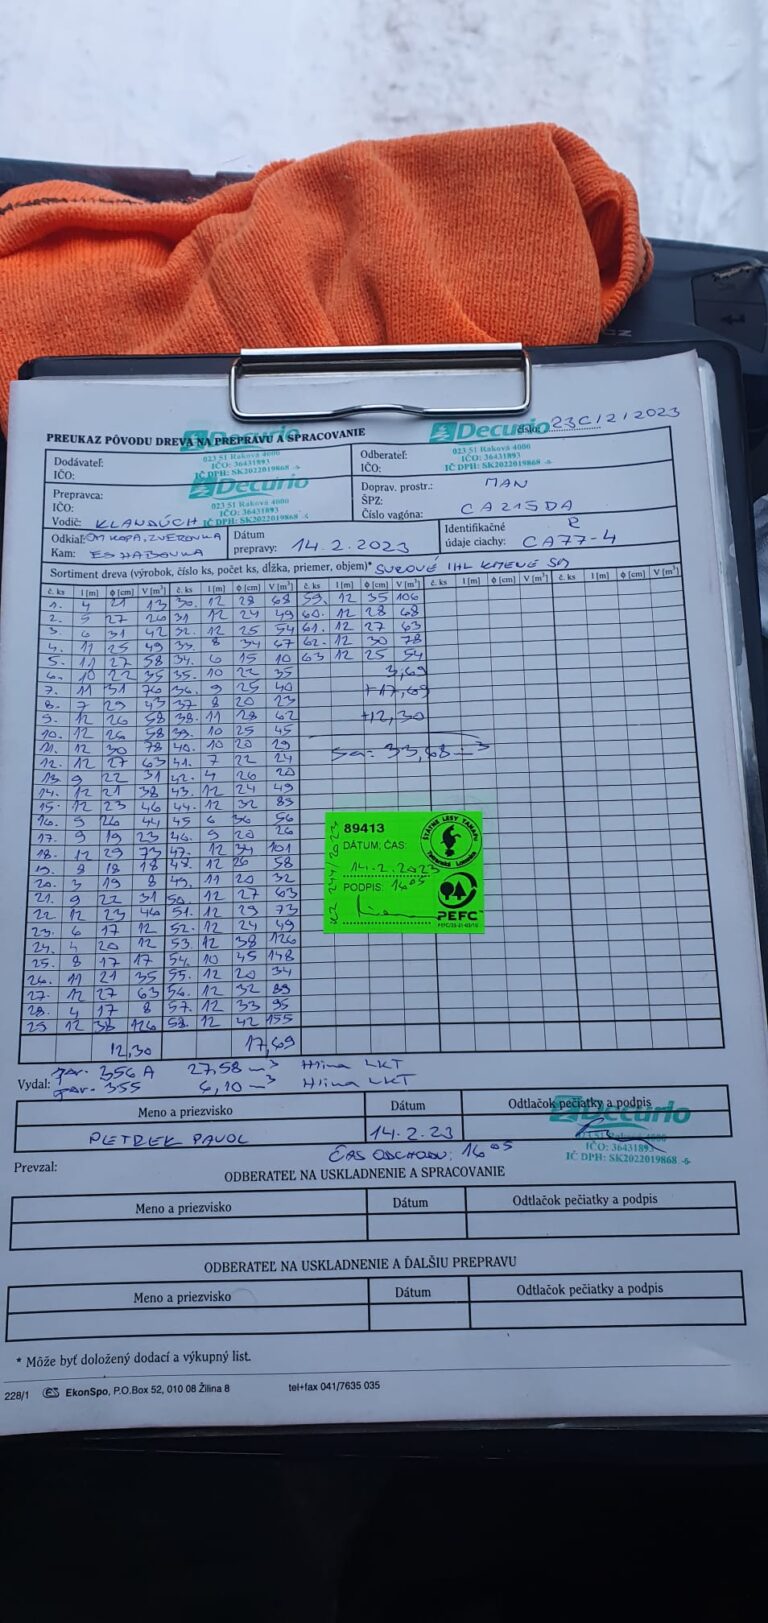 Decurio
Decurio
číslo: 23C/2/2023
PREUKAZ PÔVODU DREVA NA PREPRAVU A SPRACOVANIE
023 51 Raková 4000
IČO: 36431893
IČ DPH: SK2022019868
Dodávateľ:
IČO:
Odberateľ:
IČO:
023 51 Raková 4000
IČO: 36431893
IČ DPH: SK2022019868
Decurio
Prepravca:
IČO:
Vodič: KLANDÚCH
023 51 Raková 4000
IČO: 36431893
IČ DPH: SK2022019868
Doprav. prostr.: MAN
ŠPZ:
Číslo vagóna: CA215DA
Odkiaľ: OM KOPA, ZVEROVKA
Kam: ES HABOVKA
Dátum
prepravy: 14.2.2023
Identifikačné R
údaje ciachy: CA77-4
Sortiment dreva (výrobok, číslo ks, počet ks, dĺžka, priemer, objem)* SUROVÉ IHL KMENE SM
č. ks l [m] ϕ [cm] V [m³] č. ks l [m] ϕ [cm] V [m³] č. ks l [m] ϕ [cm] V [m³] č. ks l [m] ϕ [cm] V [m³] č. ks l [m] ϕ [cm] V [m³]
1. 4 21 13 30. 12 28 68 59. 12 35 106
2. 5 27 26 31 12 24 49 60. 12 28 68
3. 6 31 42 32. 12 25 54 61. 12 27 63
4. 11 25 49 33. 8 34 67 62. 12 30 78
5. 11 27 58 34. 6 15 10 63 12 25 54
6. 10 22 35 35. 10 22 35 3,69
7. 11 31 76 36. 9 25 40 +17,69
8. 7 29 43 37 8 20 23
9. 12 26 58 38. 11 28 62 +12,30
10. 12 26 58 39. 10 25 45
11. 12 30 78 40. 10 20 29
12. 12 27 63 41. 7 22 24 = 33,68 m³
13 9 22 31 42. 4 26 20
14. 12 21 38 43. 12 24 49
15. 12 23 46 44. 12 32 89
16. 9 26 44 45 6 36 56
17. 9 19 23 46. 9 20 26
18. 12 29 73 47. 12 34 101
19. 8 18 18 12 26 58
20. 3 19 8 49. 11 20 32
21. 9 22 31 50. 12 27 63
22 12 23 46 51. 12 29 73
23. 6 17 12 52. 12 24 49
24. 4 20 12 53 12 38 126
25. 8 17 17 54. 10 45 148
26. 11 21 35 55. 12 20 34
27. 12 27 63 56. 12 32 89
28. 4 17 8 57. 12 33 95
29 12 38 126 58. 12 42 155
12,30 17,69
89413
DÁTUM, ČAS:
14.2.2023
PODPIS: 16⁰⁵
ŠTÁTNE LESY TANAPU
Tatranská Lomnica
PEFC
Vydal:
356 A 27,58 m³ Hlina LKT
355 6,10 m³ Hlina LKT
Meno a priezvisko Dátum Odtlačok pečiatky a podpis
PETREK PAVOL 14.2.23
Decurio
023 51 Raková 4000
IČO: 36431893
IČ DPH: SK2022019868
ČAS ODCHODU: 16⁰⁵
Prevzal:
ODBERATEĽ NA USKLADNENIE A SPRACOVANIE
Meno a priezvisko Dátum Odtlačok pečiatky a podpis
ODBERATEĽ NA USKLADNENIE A ĎALŠIU PREPRAVU
Meno a priezvisko Dátum Odtlačok pečiatky a podpis
* Môže byť doložený dodací a výkupný list.
228/1 EkonSpo, P.O.Box 52, 010 08 Žilina 8 tel+fax 041/7635 035